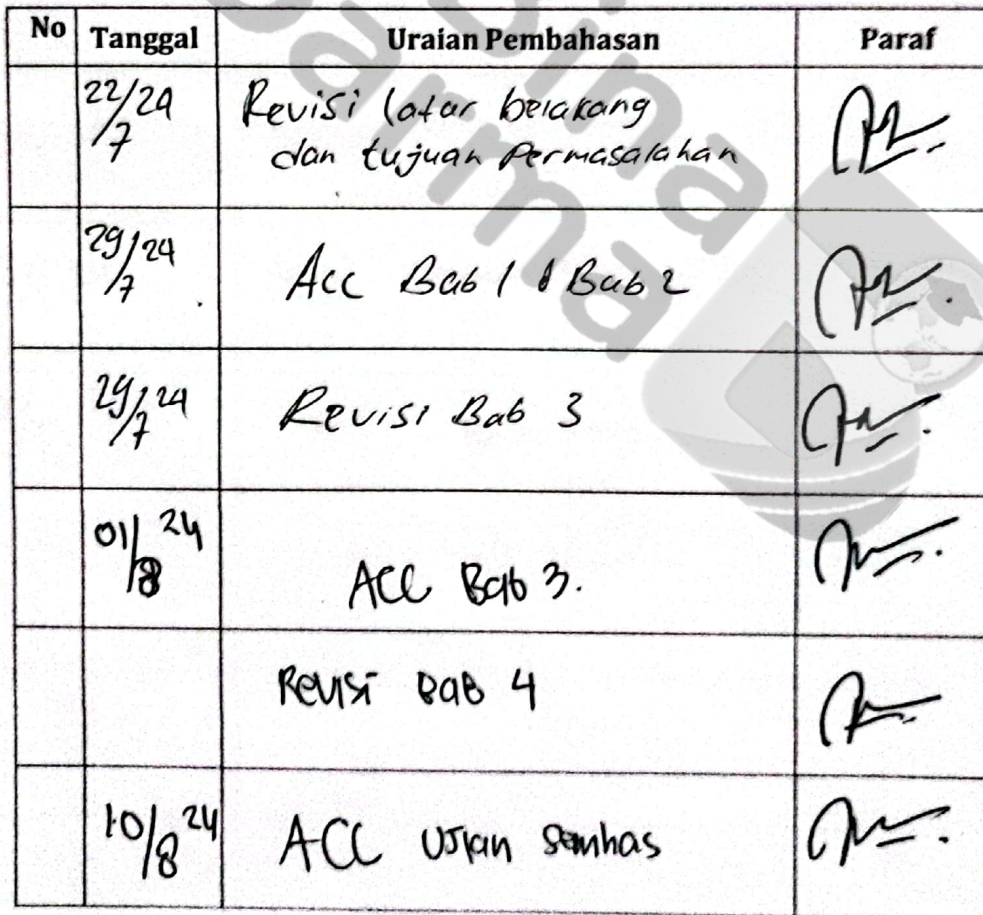 No Tanggal Uraian Pembahasan Paraf
22/24/7 Revisi latar belakang
dan tujuan Permasalahan
29/24/7 Acc Bab 1 & Bab 2
29/24/7 Revisi Bab 3
01/8 24 ACC Bab 3.
Revisi Bab 4
10/8 24 ACC Ujian semhas
Bina
Darma